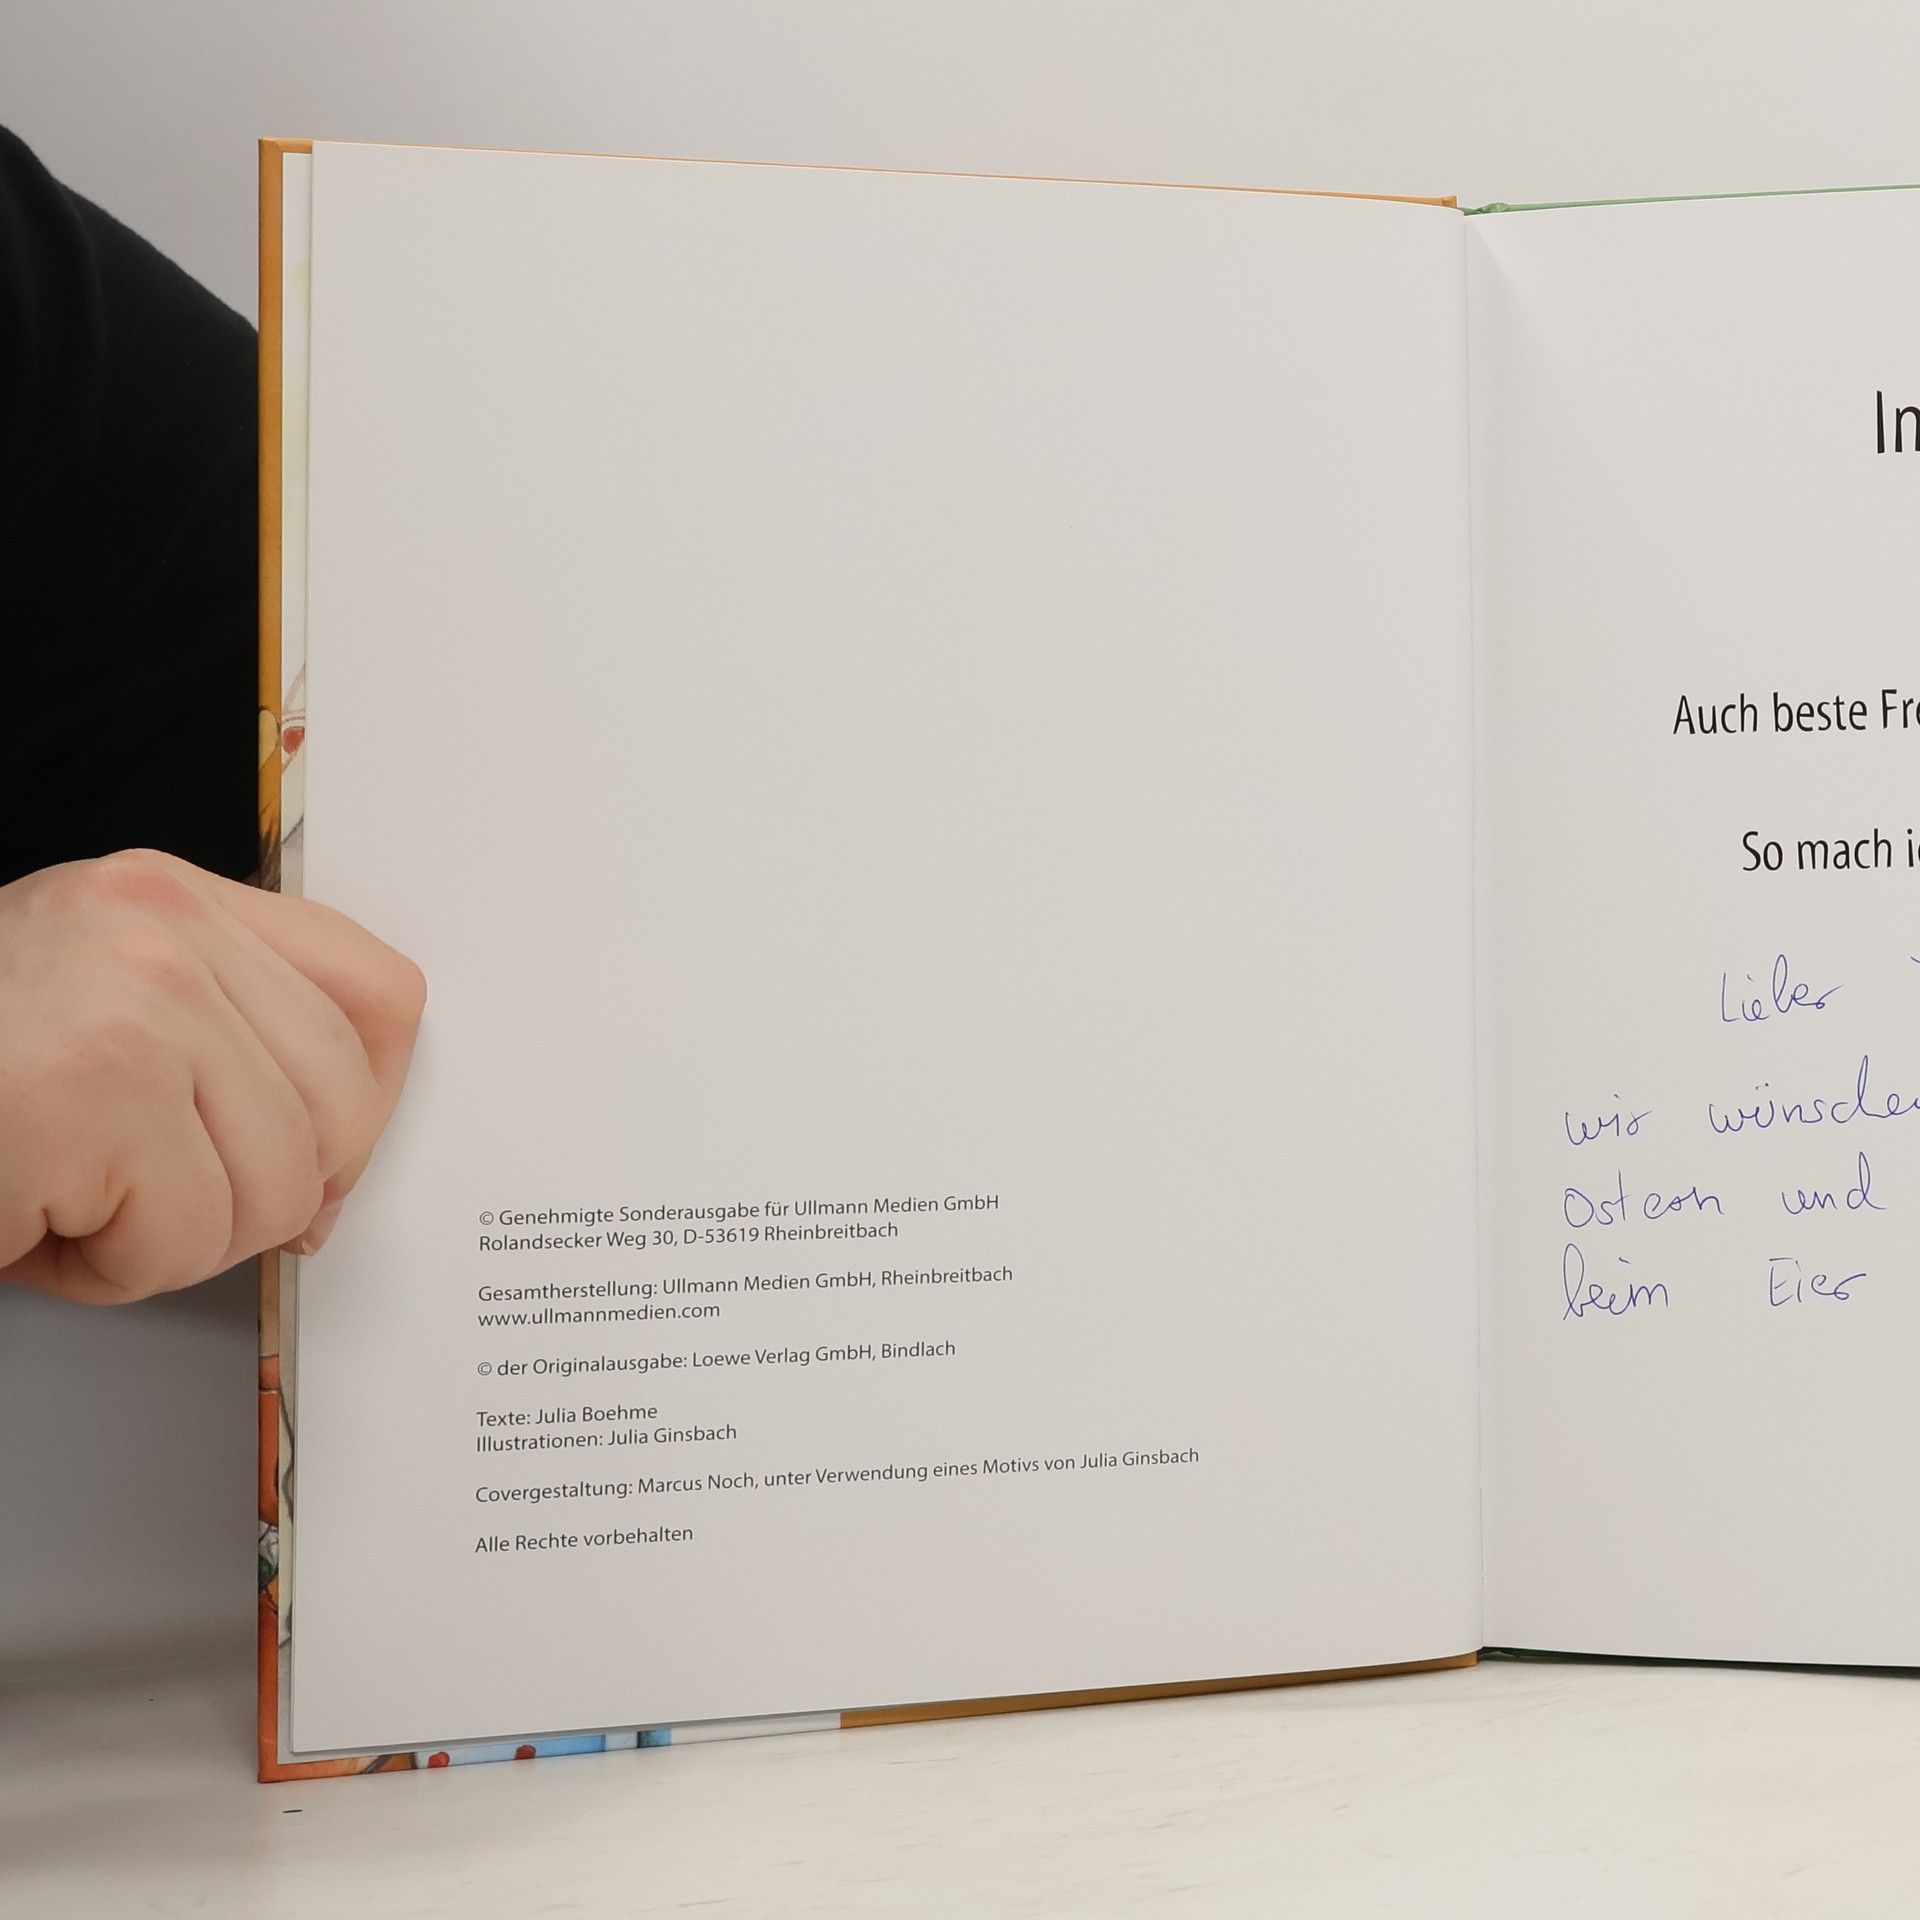 © Genehmigte Sonderausgabe für Ullmann Medien GmbH
Rolandsecker Weg 30, D-53619 Rheinbreitbach
Gesamtherstellung: Ullmann Medien GmbH, Rheinbreitbach
www.ullmannmedien.com
© der Originalausgabe: Loewe Verlag GmbH, Bindlach
Texte: Julia Boehme
Illustrationen: Julia Ginsbach
Covergestaltung: Marcus Noch, unter Verwendung eines Motivs von Julia Ginsbach
Alle Rechte vorbehalten
In
Auch beste Fre
So mach ic
Lieber
wir wünschen
Ostern und
beim Eier